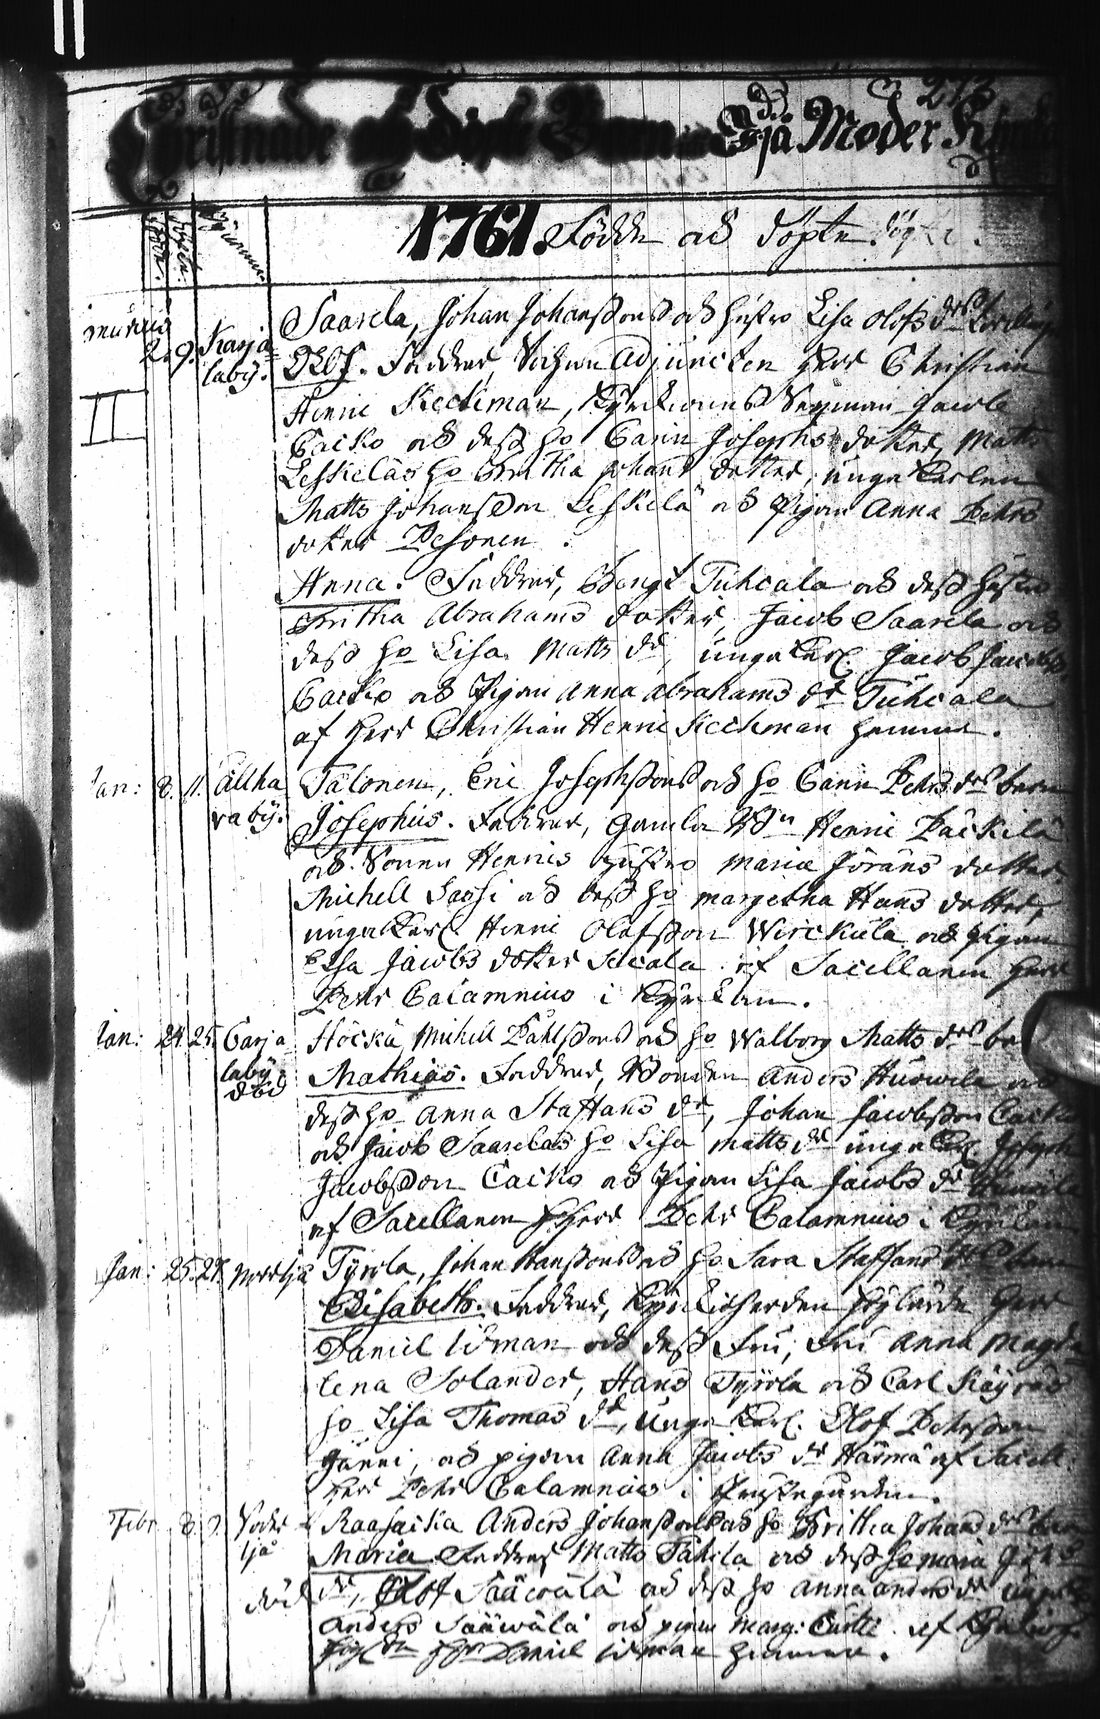 273
Christnade och Döpte Barn i Ijå Moder Kyrckia
1761. Födde och döpte
födde. döpte. Byarne.
Januarius 2. 9. Karjalaby. Saarela, Johan Johanssons och hustro Lisa Olofs dr
Olof. Faddrar, Sochne Adjuncten Herr Christian
Henric Keckman, Kyrkiones Sexman Jacob
Cacko och dess ho Carin Josephs dotter, Matts
Leskeläs ho Britha Johans dotter, unga Carlen
Matts Johansson Leskelä och Pigan Anna Pehrs
dotter Pesonen.
II
Anna. Faddrar, Bengt Tuhcala och dess hustro
Britha Abrahams dotter, Jacob Saarela och
dess ho Lisa Matts dr, unga Carl. Jacob Jacobs.
Cacko och Pigan Anna Abrahams dr Tuhcala
af Herr Christian Henric Keckman hemma.
Jan: 8. 11. Alltharaby. Talonen, Eric Josephssons och ho Carin Pehrs drs barn
Josephus. Faddrar, Gamla Henric Päckilä
och Sonen Henrics hustro Maria Jörans dotter,
Michell Sassi och dess ho Margetha Hans dotter,
unga Carl. Henric Olofsson Wirckula och pigan
Elsa Jacobs dotter af Sacellanen Herr
Pehr Calamnius i Kyrkan.
Jan: 24. 25. Carjalaby död Höckä Michell Påhlssons och ho Walborg Matts drs
Mathias. Faddrar, Bonden Anders Huowila och
dess ho Anna Staffans dr, Johan Jacobsson Cacko
och Jacob Saarelas ho Lisa Matts dr unga Carl Joseph
Jacobsson Cacko och Pigan Lisa Jacobs dr
af Sacellanen Herr Pehr Calamnius i Kyrkan
Jan: 25. 27. Norr Ijå Tyrola, Johan Hanssons och ho Sara Staffans drs barn
Elisabeth. Faddrar, Kyrkioherden Höglärde Herr
Daniel Widman och dess Fru, Fru Anna Magda
lena Solander, Hans Tyrola och Carl
ho Lisa Thomas dr, unga Carl. Olof Pehrsson
Jänni, och pigan Anna Jacobs dr Härmä af Sacell.
Herr Pehr Calamnius i Prästegården.
Febr. 8. 9. Söder Ijå död Raasacka Anders Johanssons och ho Britha Johans drs barn
Maria. Faddrar Matts Tahkila och dess ho Maria
dr, Olof Sääwälä och dess ho Anna Anders dr unga
Anders Sääwälä och pigan Marg: Curtti af Kyrkioh.
Daniel Widman hemma.